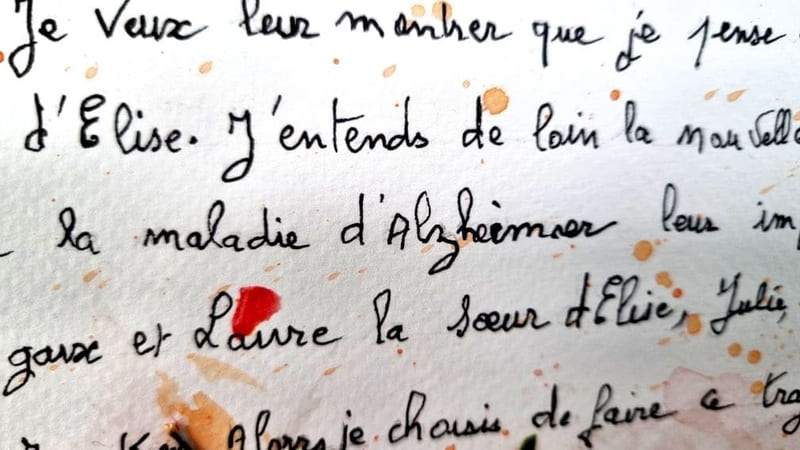 Je veux leur montrer que je pense
d'Elise. J'entends de loin la nouvelle
la maladie d'Alzheimer leur imp
gaux et Laure la sœur d'Elise, Julie,
Alors je choisis de faire ce tra